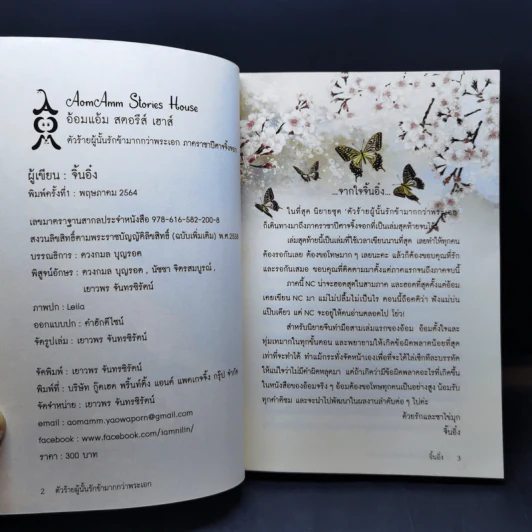 AomAmm Stories House
อ้อมแอ้ม สตอรีส์ เฮาส์
ตัวร้ายผู้นั้นรักข้ามากกว่าพระเอก ภาคราชาปีศาจจิ้งจอก
ผู้เขียน : จิ้นอิ๋ง
พิมพ์ครั้งที่1 : พฤษภาคม 2564
เลขมาตราฐานสากลประจำหนังสือ 978-616-582-200-8
สงวนลิขสิทธิ์ตามพระราชบัญญัติลิขสิทธิ์ (ฉบับเพิ่มเติม) พ.ศ.2558
บรรณาธิการ : ดวงกมล บุญรอด
พิสูจน์อักษร : ดวงกมล บุญรอด , นัชชา จิตรสมบูรณ์ ,
เยาวพร จันทรชิรัตน์
ภาพปก : Leila
ออกแบบปก : คำฮักดีไซน์
จัดรูปเล่ม : เยาวพร จันทรชิรัตน์
จัดพิมพ์ : เยาวพร จันทรชิรัตน์
พิมพ์ที่ : บริษัท กู๊ดเฮด พริ้นท์ติ้ง แอนด์ แพคเกจจิ้ง กรุ๊ป จำกัด
จัดจำหน่าย : เยาวพร จันทรชิรัตน์
email : aomamm.yaowaporn@gmail.com
facebook : www.facebook.com/iamnilin/
ราคา : 300 บาท
2 ตัวร้ายผู้นั้นรักข้ามากกว่าพระเอก
...จากใจจิ้นอิ๋ง...
ในที่สุด นิยายชุด 'ตัวร้ายผู้นั้นรักข้ามากกว่าพระเอก
ก็เดินทางมาถึงภาคราชาปีศาจจิ้งจอกที่เป็นเล่มสุดท้าย
เล่มสุดท้ายนี้เป็นเล่มที่ใช้เวลาเขียนนานที่สุด เลยทำให้ทุกคน
ต้องรอกันเลย ต้องขอโทษมาก ๆ เลยนะคะ แล้วก็ต้องขอบคุณที่รัก
และรอกันเสมอ ขอบคุณที่ติดตามมาตั้งแต่ภาคแรกจนถึงภาคจบนี้
ภาคนี้ NC น่าจะฮอตสุดในสามภาค และฮอตที่สุดตั้งแต่อ้อม
เคยเขียน NC มา แม่ไม่ปลื้มไม่เป็นไร ตอนนี้ถือคติว่า ฟังแม่บ่น
แป๊บเดียว แต่ NC จะอยู่ให้คนอ่านตลอดไป โฮ่ว!
สำหรับนิยายจีนทำมือสามเล่มแรกของอ้อม อ้อมตั้งใจและ
ทุ่มเทมากในทุกขั้นตอน และพยายามให้เกิดข้อผิดพลาดน้อยที่สุด
เท่าที่จะทำได้ ทำแม้กระทั่งจัดหน้าเองเพื่อที่จะได้ไล่เช็กทีละบรรทัด
ให้แน่ใจว่าไม่มีคำผิดหลุดมา แต่ถ้าเกิดว่ามีข้อผิดพลาดอะไรที่เกิดขึ้น
ในหนังสือของอ้อมจริง ๆ อ้อมต้องขอโทษทุกคนเป็นอย่างสูง น้อมรับ
ทุกคำติชม และจะนำไปพัฒนาในผลงานลำดับต่อ ๆ ไปค่ะ
ด้วยรักและชาไข่มุก
จิ้นอิ๋ง
จิ้นอิ๋ง 3